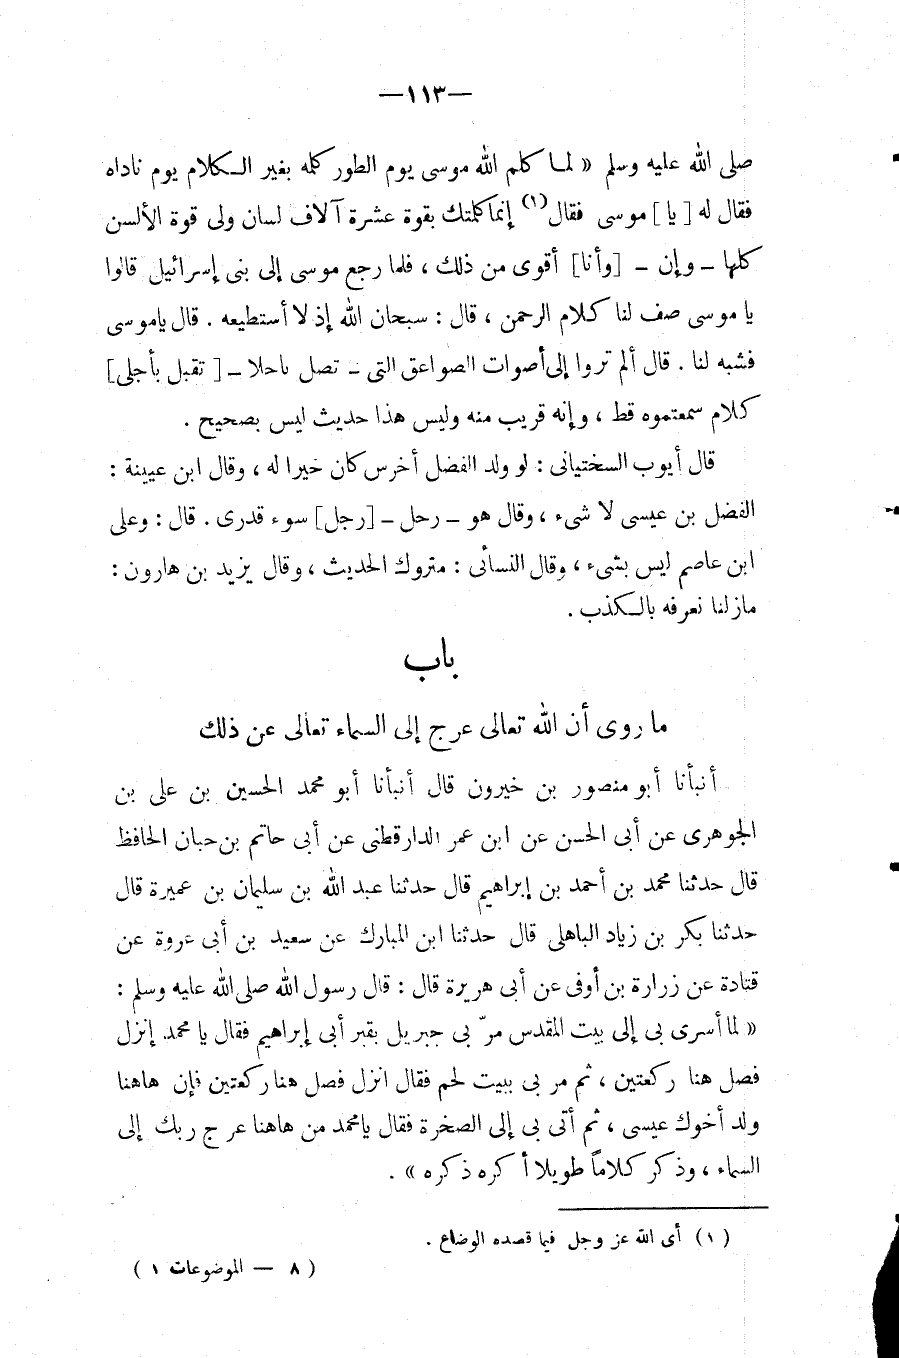 —١١٣—
صلى الله عليه وسلم « لما كلم الله موسى يوم الطور كلمه بغير الكلام يوم ناداه
فقال له [ يا ] موسى فقال(١) إنما كلمتك بقوة عشرة آلاف لسان ولى قوة الألسن
كلها ـ وإن ـ [وأنا] أقوى من ذلك ، فلما رجع موسى إلى بنى إسرائيل قالوا
يا موسى صف لنا كلام الرحمن ، قال : سبحان الله إذ لا أستطيعه . قال ياموسى
فشبه لنا . قال ألم تروا إلى أصوات الصواعق التى ـ تصل باحلا ـ [ تقبل بأجلى]
كلام سمعتموه قط ، وإنه قريب منه وليس هذا حديث ليس بصحيح .
قال أيوب السختيانى : لو ولد الفضل أخرس كان خيرا له ، وقال ابن عيينة :
الفضل بن عيسى لا شىء ، وقال هو ـ رحل ـ [رجل] سوء قدرى . قال : وعلى
ابن عاصم ليس بشىء ، وقال النسائى : متروك الحديث ، وقال يزيد بن هارون :
مازلنا نعرفه بالكذب .
باب
ما روى أن الله تعالى عرج إلى السماء تعالى عن ذلك
أنبأنا أبو منصور بن خيرون قال أنبأنا أبو محمد الحسين بن على بن
الجوهرى عن أبى الحسن عن ابن عمر الدارقطنى عن أبى حاتم بن حبان الحافظ
قال حدثنا محمد بن أحمد بن إبراهيم قال حدثنا عبد الله بن سليمان بن عميرة قال
حدثنا بكر بن زياد الباهلى قال حدثنا ابن المبارك عن سعيد بن أبى عروة عن
قتادة عن زرارة بن أوفى عن أبى هريرة قال : قال رسول الله صلى الله عليه وسلم :
« لما أسرى بى إلى بيت المقدس مرّ بى جبريل بقبر أبى إبراهيم فقال يا محمد إنزل
فصل هنا ركعتين ، ثم مر بى ببيت لحم فقال انزل فصل هنا ركعتين فإن هاهنا
ولد أخوك عيسى ، ثم أتى بى إلى الصخرة فقال يامحمد من هاهنا عرج ربك إلى
السماء ، وذكر كلاماً طويلا أكره ذكره » .
( ١ ) أى الله عز وجل فيما قصده الوضاع .
( ٨ — الموضوعات ١ )